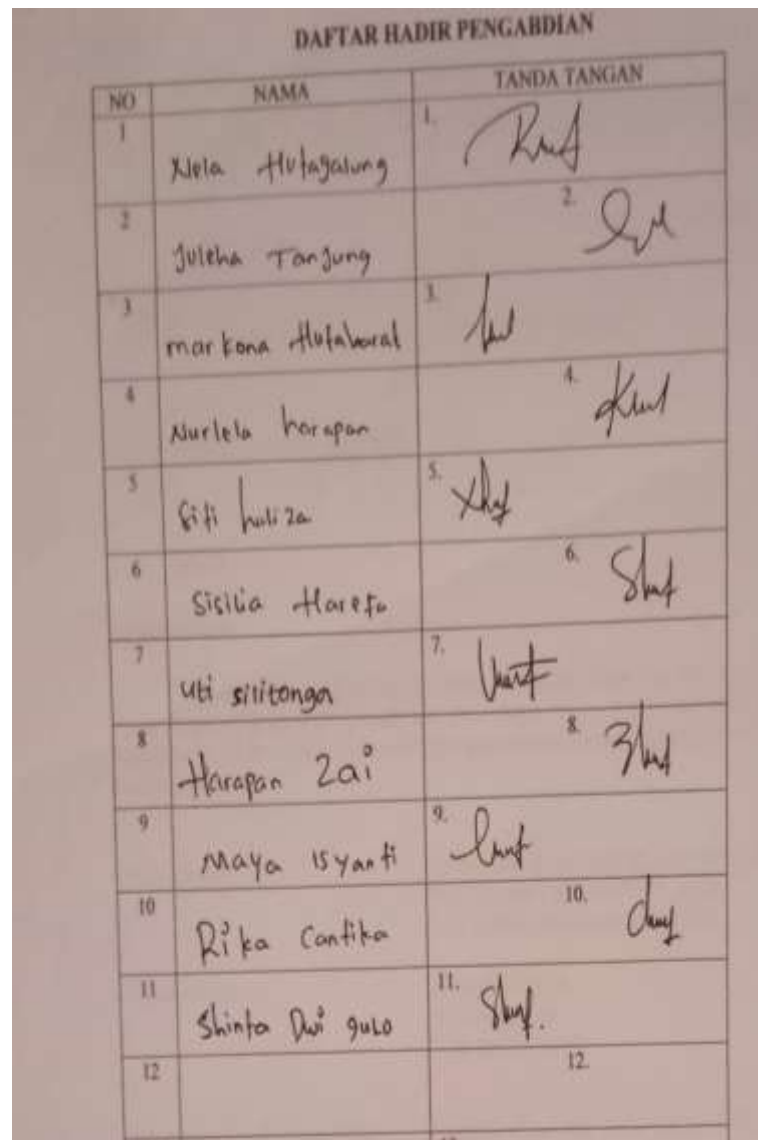 DAFTAR HADIR PENGABDIAN
NO NAMA TANDA TANGAN
1 Nela Hutagalung 1.
2 Juleha Tanjung 2.
3 markona Hutabarat 3.
4 Nurlela harapan 4.
5 Siti haliza 5.
6 Sisilia Harefa 6.
7 uti silitonga 7.
8 Harapan Zai 8.
9 Maya isyanti 9.
10 Rika Cantika 10.
11 Shinta Dwi gulo 11.
12 12.